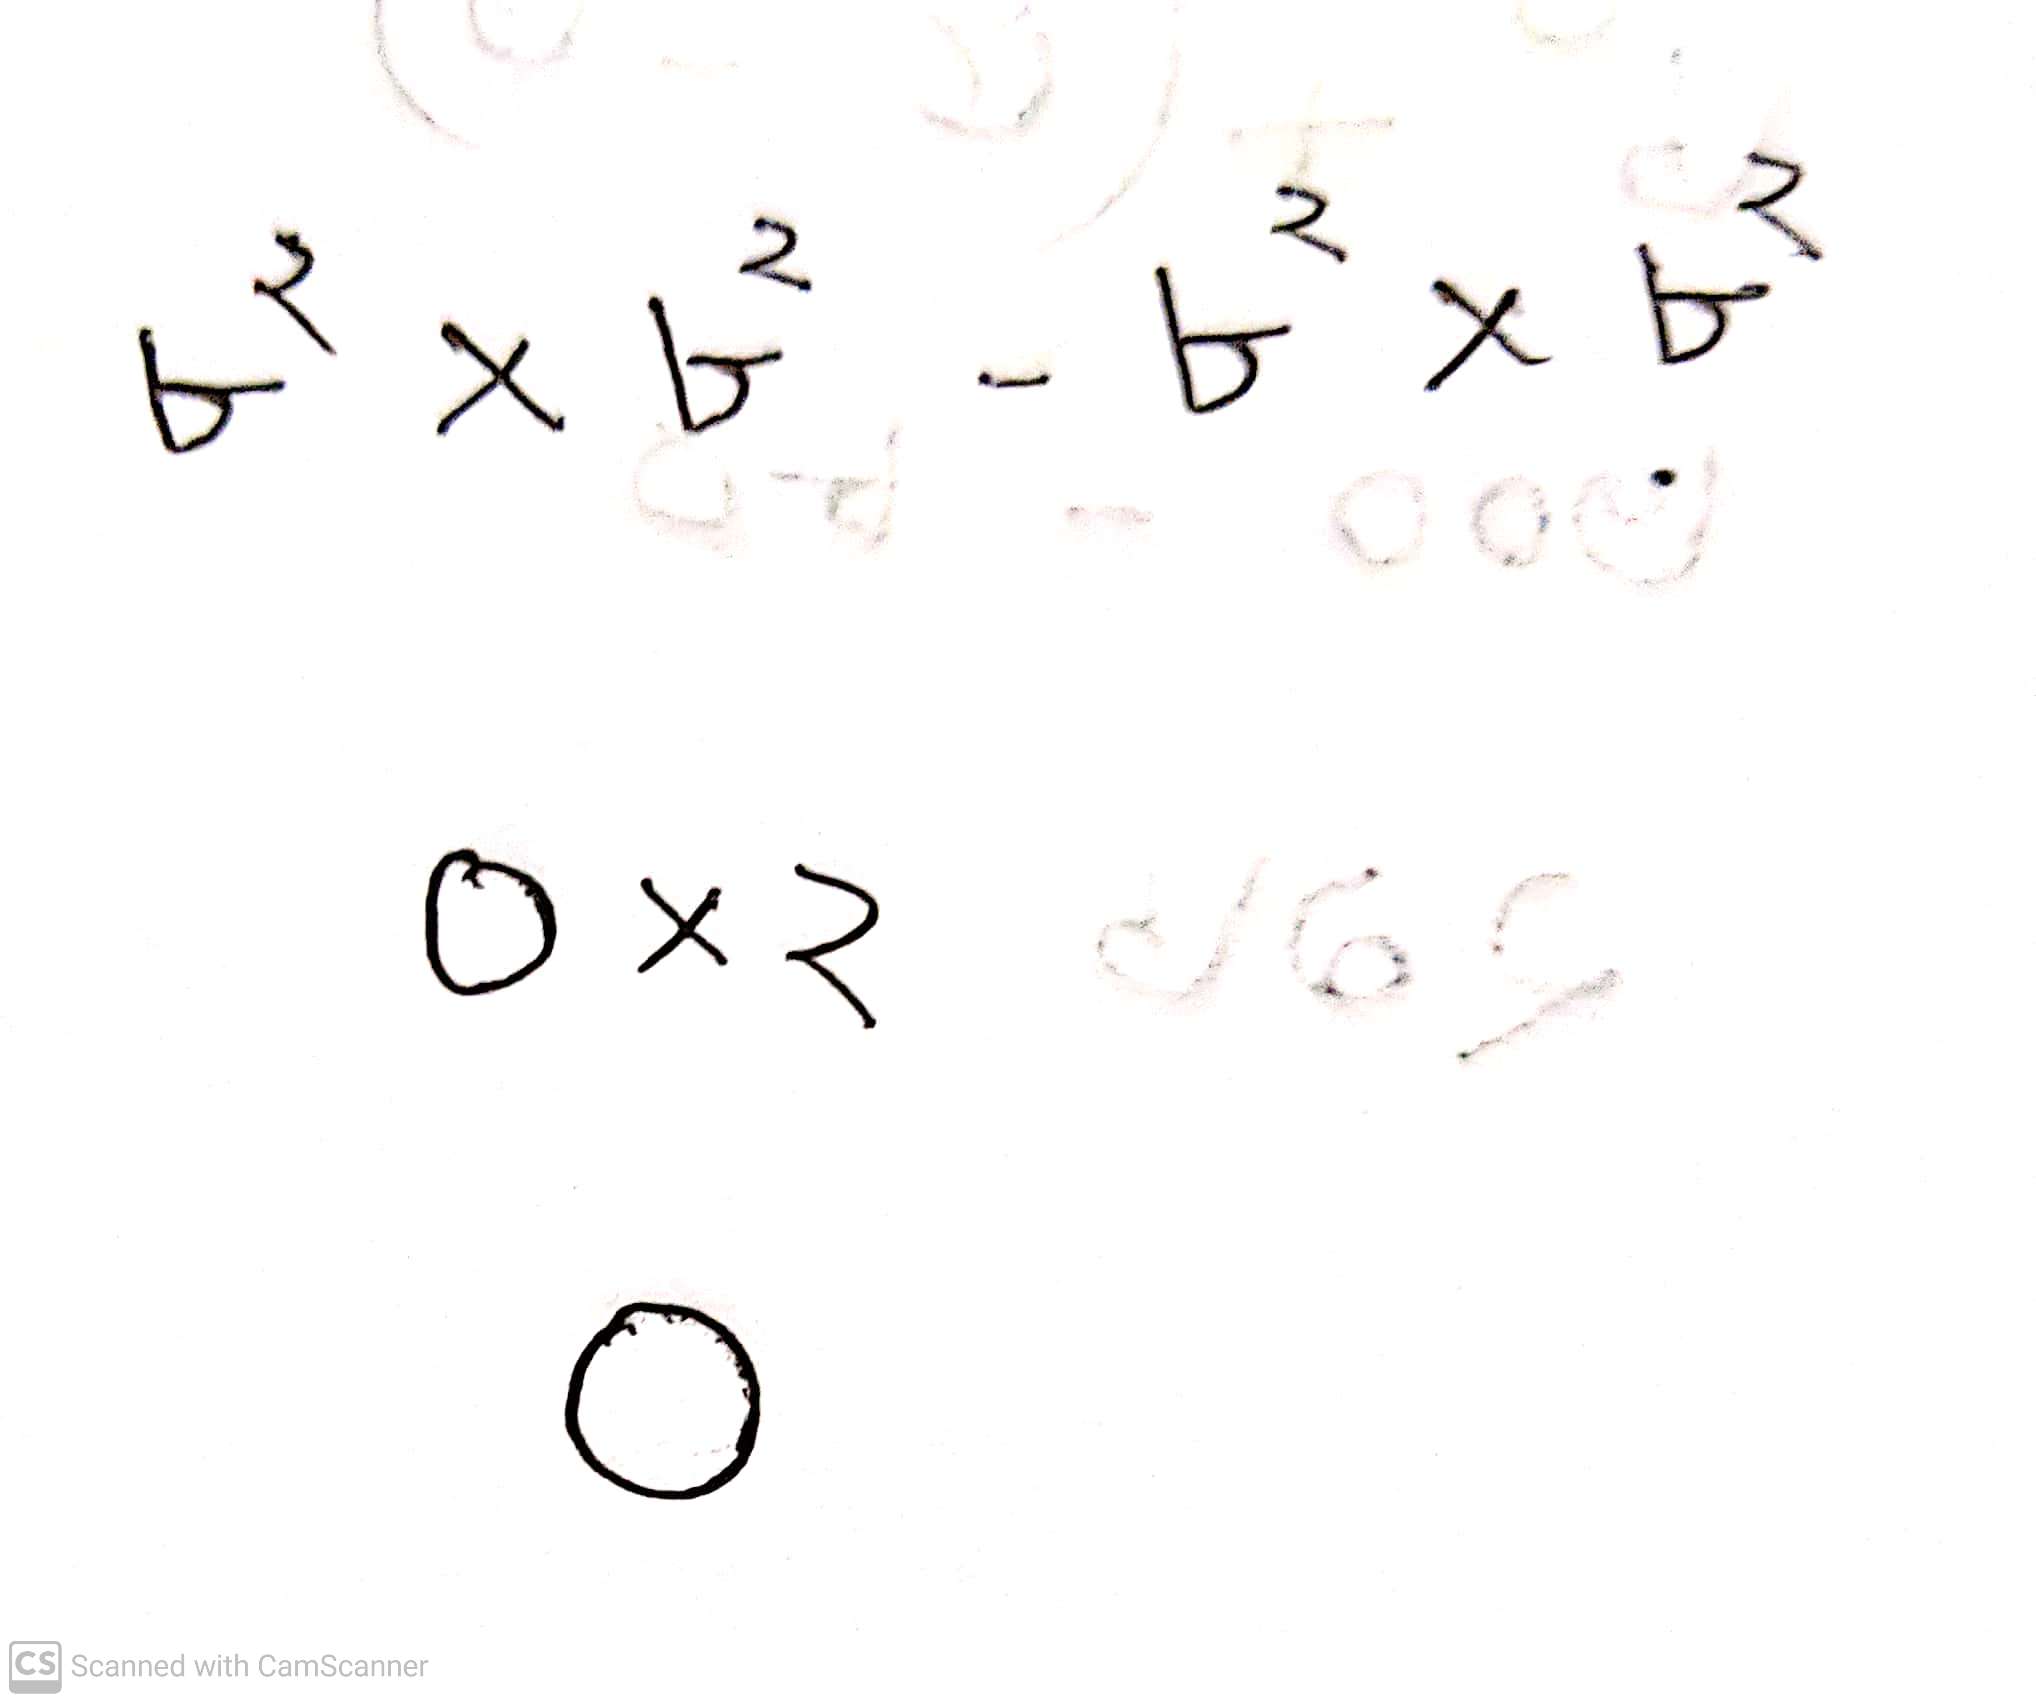 b² × b² - b² × b²
0 × 2
0
CS Scanned with CamScanner